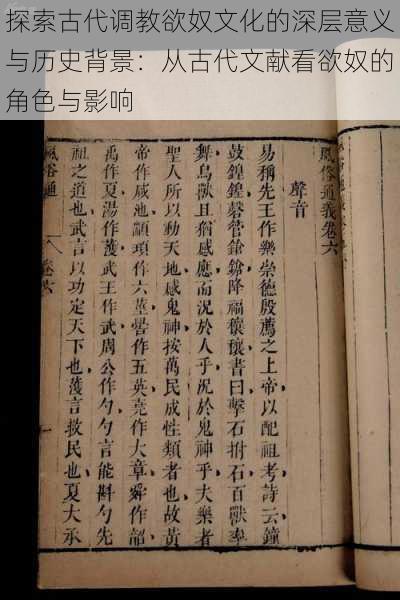 探索古代调教欲奴文化的深层意义
与历史背景：从古代文献看欲奴的
角色与影响
風俗通義卷六
聲音
易稱先王作樂崇德殷薦之上帝以配祖考詩云鐘
鼓鍠鍠磬管鎗鎗降福穰穰書曰擊石拊石百獸率
舞鳥獸且猶感應而況於人乎況於鬼神乎夫樂者
聖人所以動天地感鬼神按萬民成性類者也故黃
帝作咸池顓頊作六莖嚳作五英堯作大章舜作韶
禹作夏湯作護武王作武周公作勺勺言能斟勺先
祖之道也武言以功定天下也護言救民也夏大承
風俗通
卷六
一